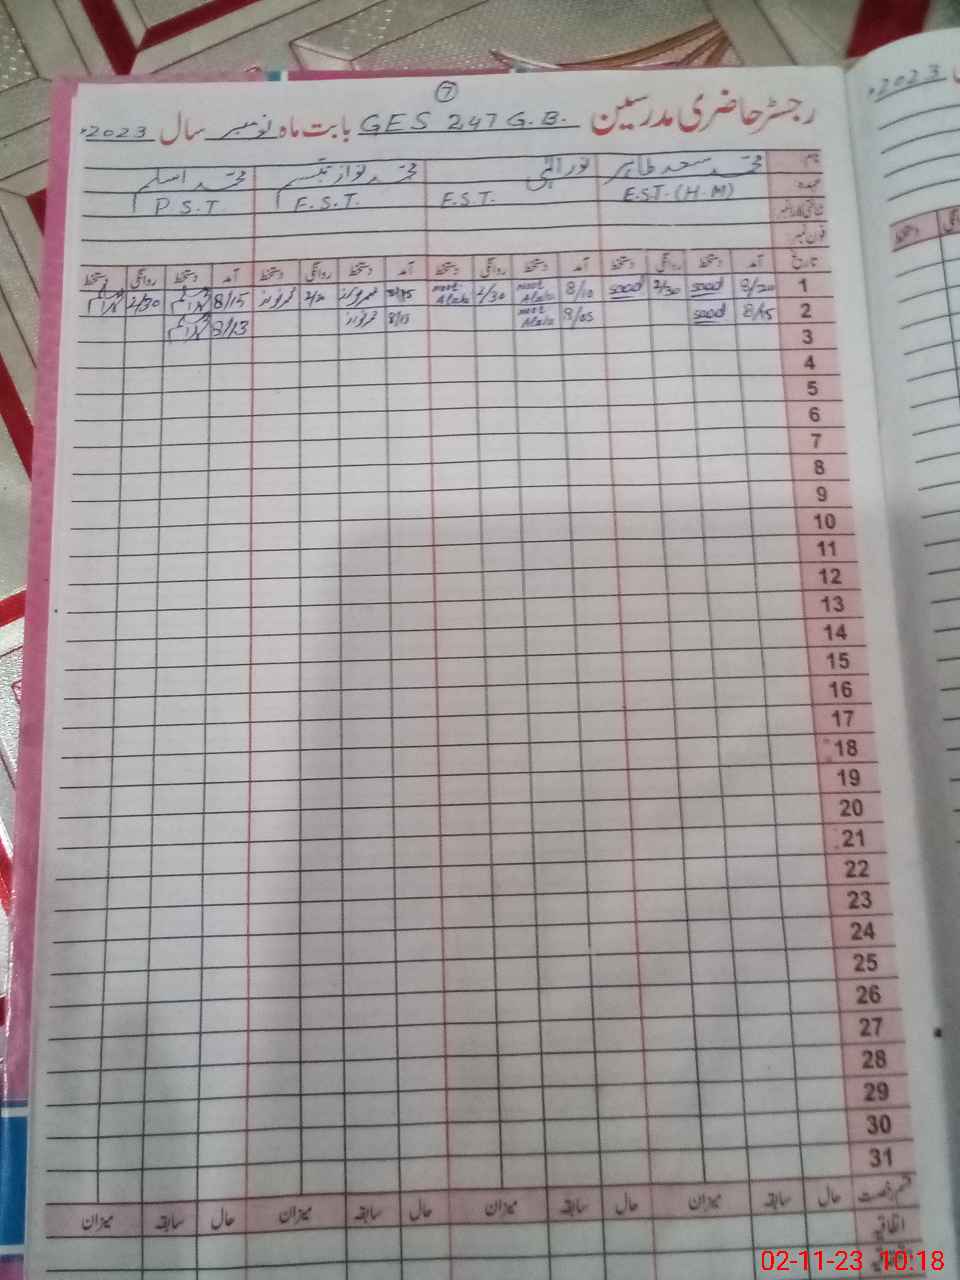 7
رجسٹر حاضری مدرسین GES 247 G.B. بابت ماہ نومبر سال 2023ء
2023ء
نام محمد سعد طاہر نور الٰہی محمد نواز تبسم محمد اسلم
عہدہ E.S.T. (H.M) E.S.T. E.S.T. P.S.T.
شناختی کارڈ نمبر
فون نمبر
تاریخ آمد دستخط روانگی دستخط آمد دستخط روانگی دستخط آمد دستخط روانگی دستخط آمد دستخط روانگی دستخط
دستخط
1 8/20 saad 2/30 saad 8/10 2/30 8/15 2/30
2 8/15 saad 8/05 8/13
3
4
5
6
7
8
9
10
11
12
13
14
15
16
17
18
19
20
21
22
23
24
25
26
27
28
29
30
31
قسم رخصت حال سابقہ میزان حال سابقہ میزان حال سابقہ میزان حال سابقہ میزان
اتفاقیہ
02-11-23 10:18